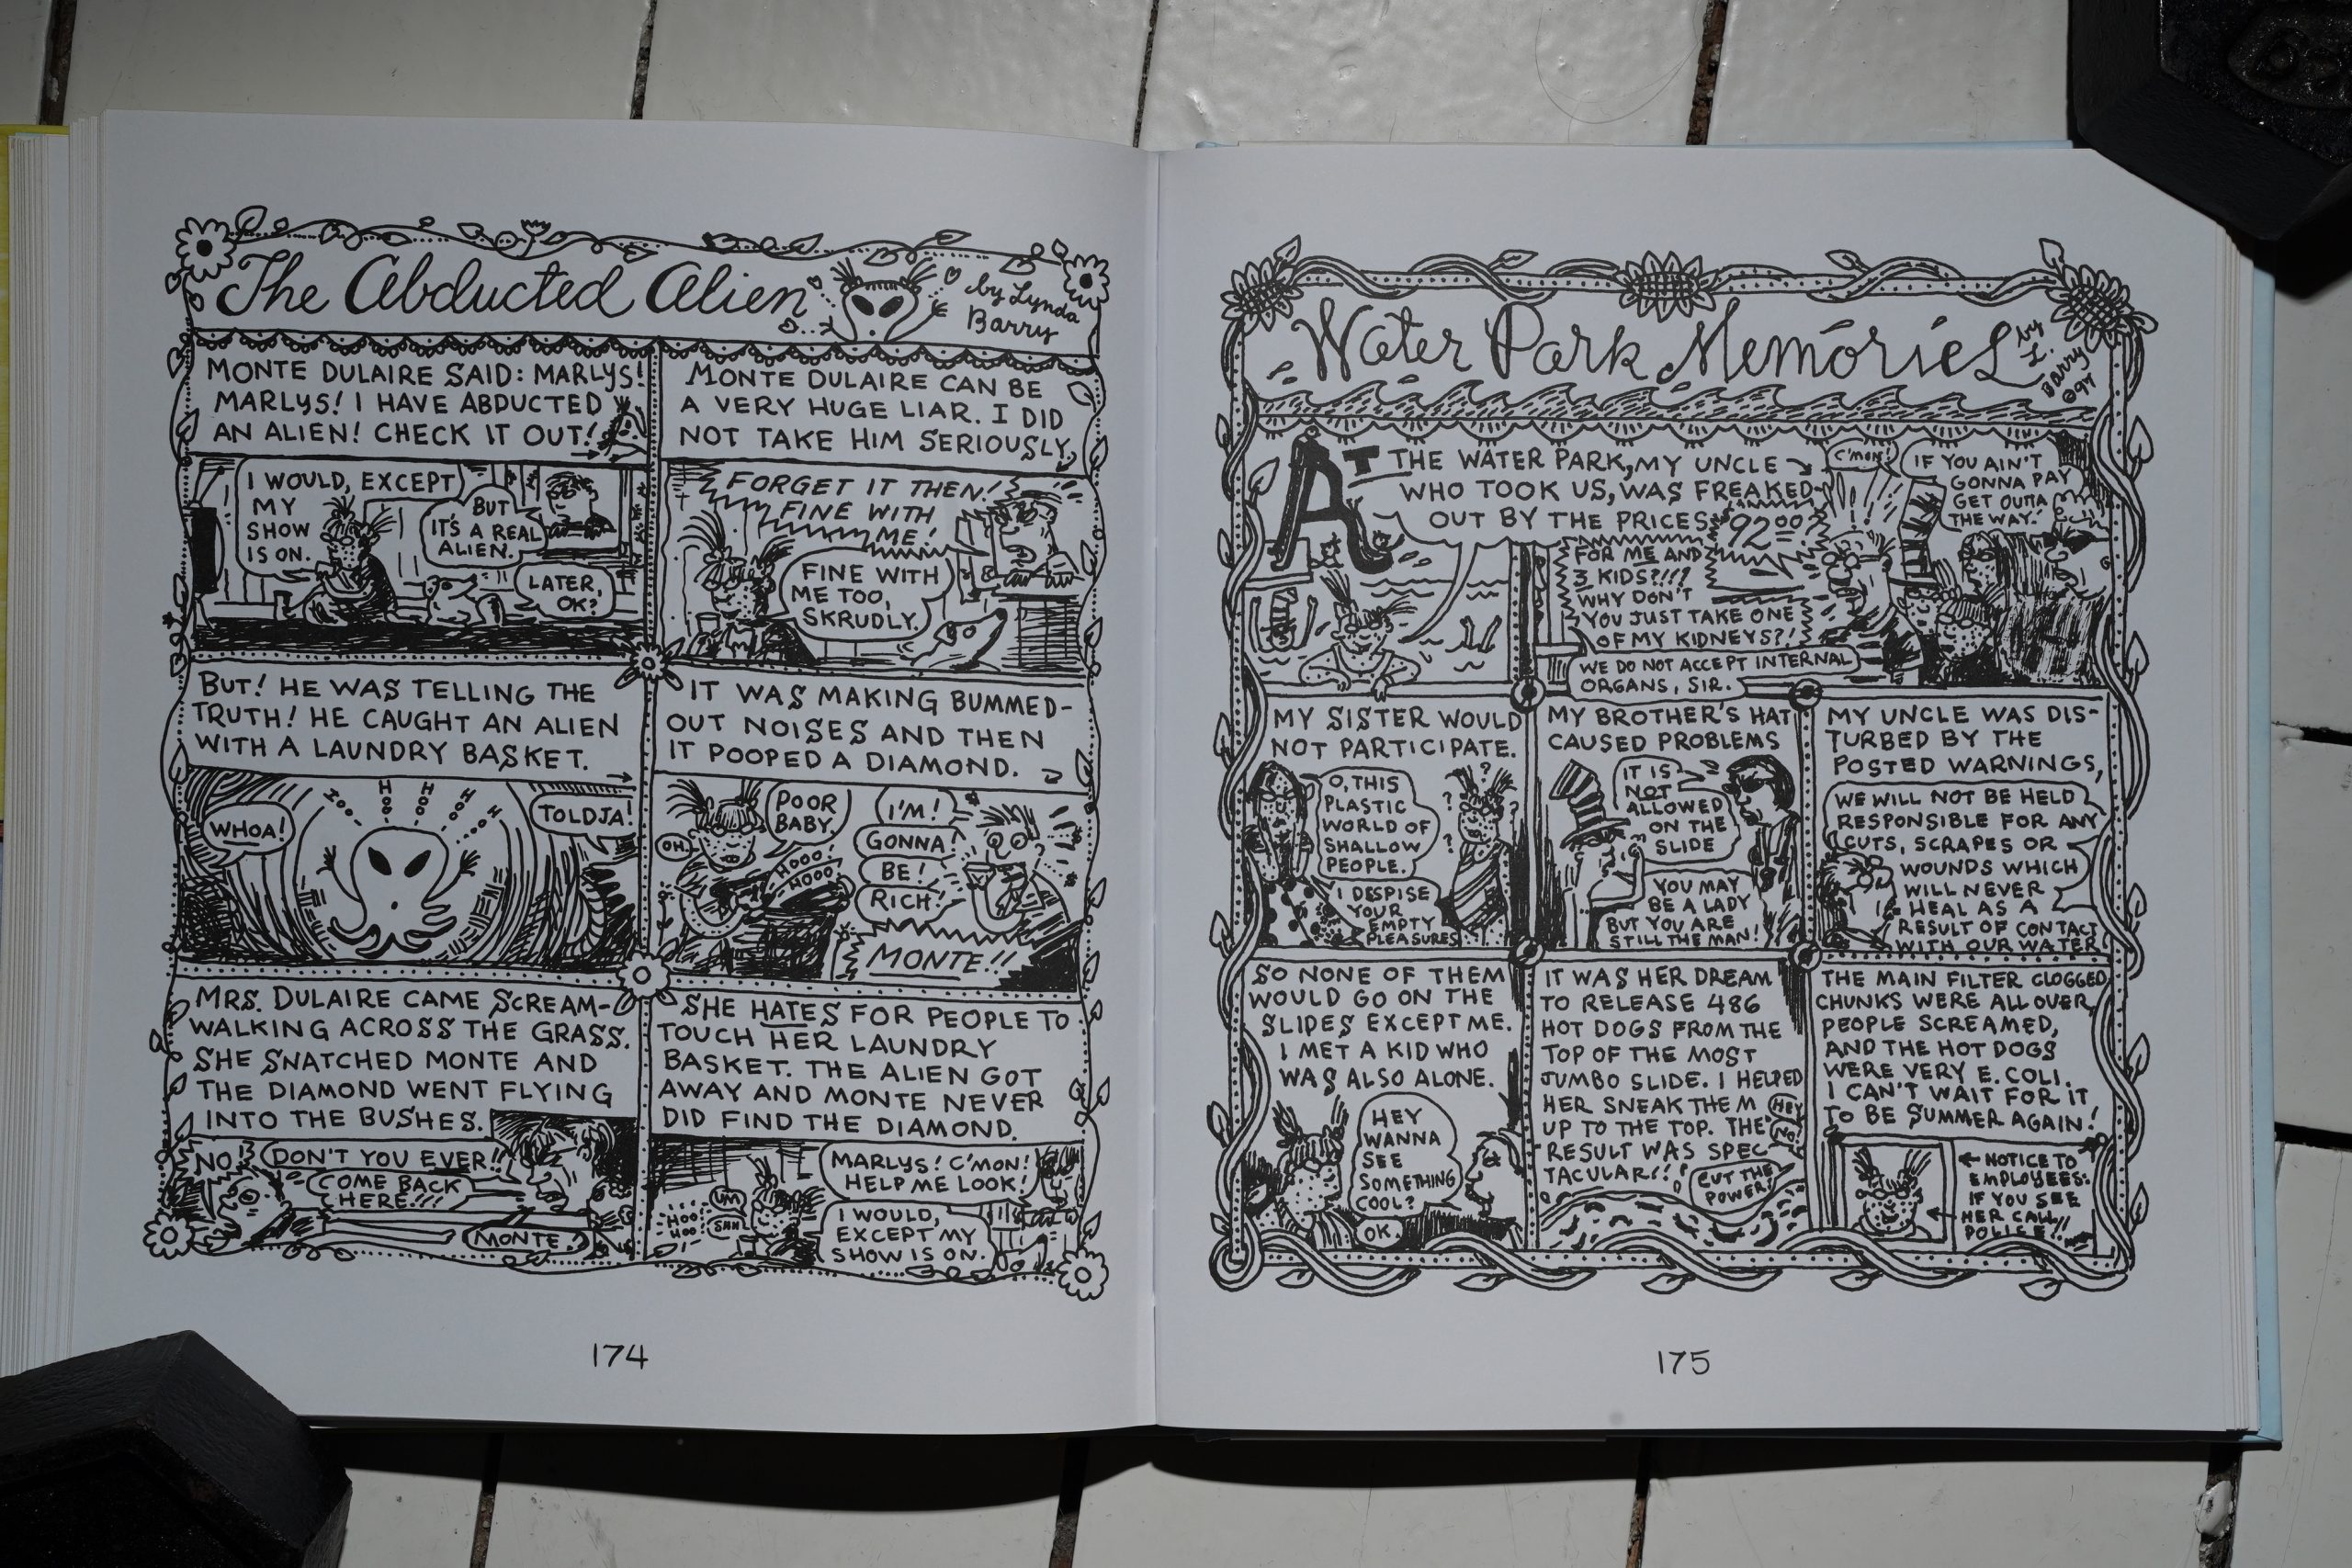 The Abducted Alien
by Lynda
Barry
MONTE DULAIRE SAID: MARLYS!
MARLYS! I HAVE ABDUCTED
AN ALIEN! CHECK IT OUT!
I WOULD, EXCEPT
MY
SHOW
IS ON.
BUT
IT'S A REAL
ALIEN.
LATER,
OK?
MONTE DULAIRE CAN BE
A VERY HUGE LIAR. I DID
NOT TAKE HIM SERIOUSLY.
FORGET IT THEN!
FINE WITH
ME!
FINE WITH
ME TOO,
SKRUDLY.
BUT! HE WAS TELLING THE
TRUTH! HE CAUGHT AN ALIEN
WITH A LAUNDRY BASKET.
WHOA!
HOO
HOO
HOO
TOLDJA!
IT WAS MAKING BUMMED-
OUT NOISES AND THEN
IT POOPED A DIAMOND.
OH.
POOR
BABY.
HOOO
HOOO
I'M!
GONNA!
BE!
RICH!
MONTE!!
MRS. DULAIRE CAME SCREAM-
WALKING ACROSS THE GRASS.
SHE SNATCHED MONTE AND
THE DIAMOND WENT FLYING
INTO THE BUSHES.
NO!
DON'T YOU EVER!!
COME BACK
HERE!!!
MONTE.
SHE HATES FOR PEOPLE TO
TOUCH HER LAUNDRY
BASKET. THE ALIEN GOT
AWAY AND MONTE NEVER
DID FIND THE DIAMOND.
HOO
HOO
UM
SHH
MARLYS! C'MON!
HELP ME LOOK!
I WOULD,
EXCEPT MY
SHOW IS ON.
174
Water Park Memories
by
L.
Barry
©97
AT THE WATER PARK, MY UNCLE
WHO TOOK US, WAS FREAKED
OUT BY THE PRICES
$92.00?
FOR ME AND
3 KIDS?!!?
WHY DON'T
YOU JUST TAKE ONE
OF MY KIDNEYS?!
C'MON!
IF YOU AIN'T
GONNA PAY
GET OUTTA
THE WAY.
WE DO NOT ACCEPT INTERNAL
ORGANS, SIR.
MY SISTER WOULD
NOT PARTICIPATE.
O, THIS
PLASTIC
WORLD OF
SHALLOW
PEOPLE.
I DESPISE
YOUR
EMPTY
PLEASURES
MY BROTHER'S HAT
CAUSED PROBLEMS
IT IS
NOT
ALLOWED
ON THE
SLIDE
YOU MAY
BE A LADY
BUT YOU ARE
STILL THE MAN!
MY UNCLE WAS DIS-
TURBED BY THE
POSTED WARNINGS,
WE WILL NOT BE HELD
RESPONSIBLE FOR ANY
CUTS, SCRAPES OR
WOUNDS WHICH
WILL NEVER
HEAL AS A
RESULT OF CONTACT
WITH OUR WATER
SO NONE OF THEM
WOULD GO ON THE
SLIDES EXCEPT ME.
I MET A KID WHO
WAS ALSO ALONE.
HEY
WANNA
SEE
SOMETHING
COOL?
OK.
IT WAS HER DREAM
TO RELEASE 486
HOT DOGS FROM THE
TOP OF THE MOST
JUMBO SLIDE. I HELPED
HER SNEAK THEM
UP TO THE TOP. THE
RESULT WAS SPEC
TACULAR!!
HEY
NO!
CUT THE
POWER!
THE MAIN FILTER CLOGGED
CHUNKS WERE ALL OVER,
PEOPLE SCREAMED,
AND THE HOT DOGS
WERE VERY E. COLI.
I CAN'T WAIT FOR IT
TO BE SUMMER AGAIN!
NOTICE TO
EMPLOYEES:
IF YOU SEE
HER CALL
POLICE!!
175